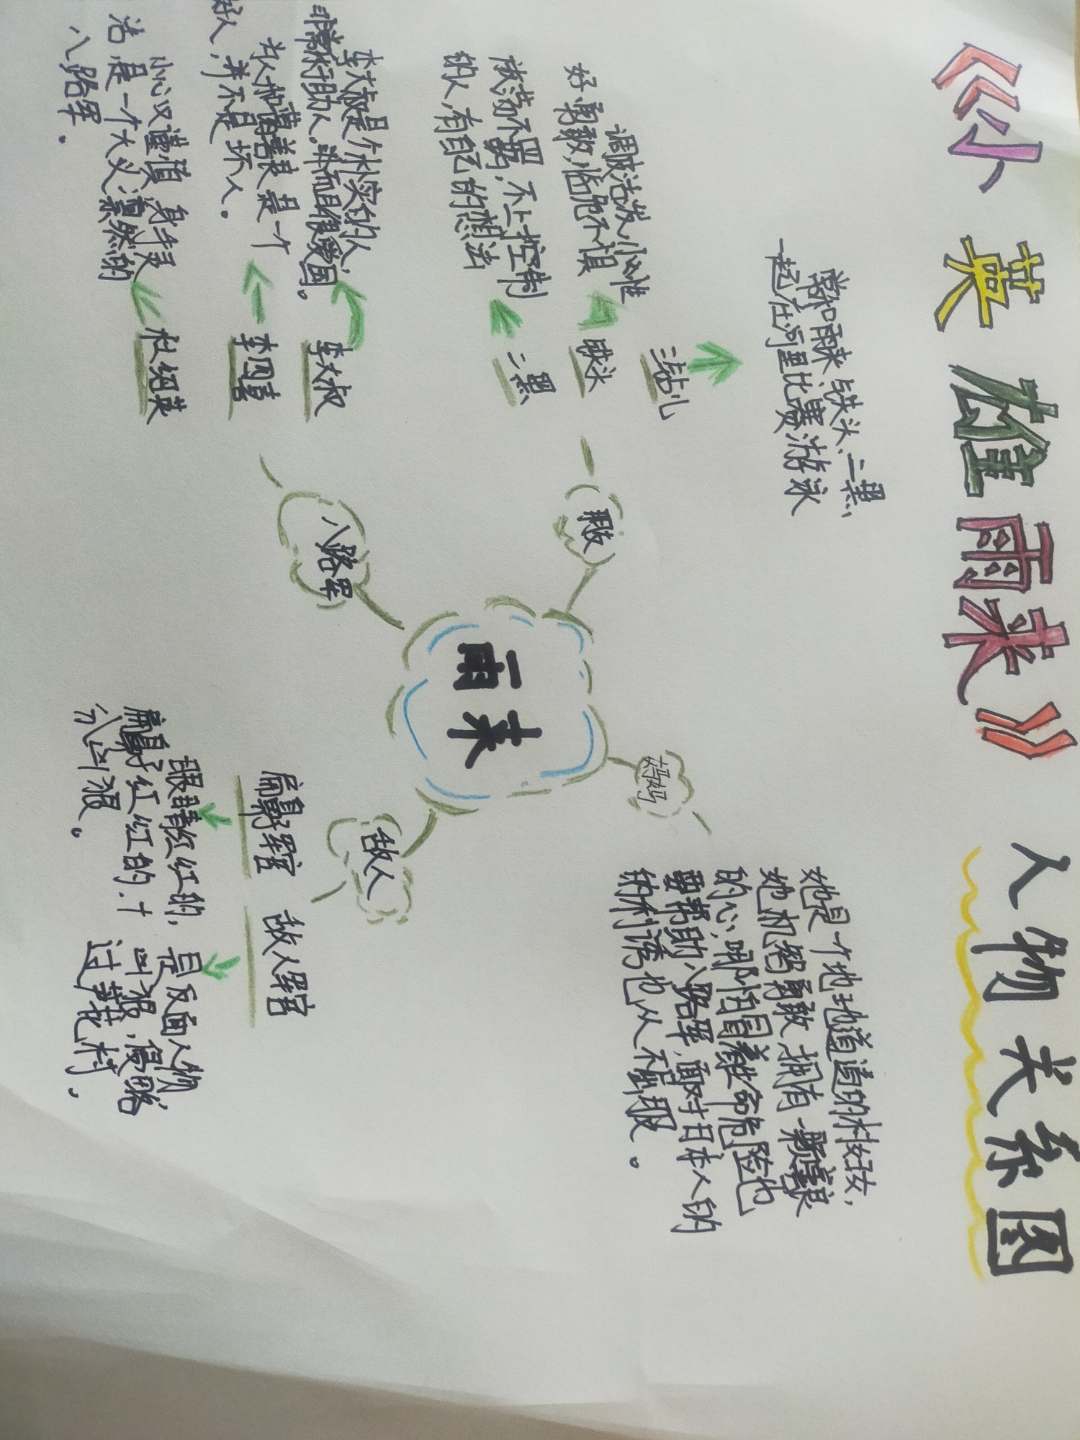 《小英雄雨来》人物关系图
常和雨来、与铁头、二黑,
一起在河里比赛游泳
三钻儿
铁头
调皮活泼,小心谁
好勇敢,临危不惧
二黑
淡荡不羁,不上控制
的人,有自己的想法
朋友
妈妈
她是一个地地道道的村妇女,
她机智勇敢,拥有一颗善良
的心,哪怕冒着生命危险也
要帮助八路军,面对日本人的
纳利诱也从不屈服。
雨来
八路军
李大叔
李大叔是个朴实的人,
非常乐于助人。并而且很爱国。
李四喜
为人和蔼善良是一个
好人,并不是坏人。
杜绍英
小心又谨慎,身手灵
活,是一个大义凛然的
八路军。
敌人
扁鼻子军官
眼睛红红的,
扁鼻子红红的.十
分凶狠。
敌人军官
是反面人物,
凶狠,侵略
过芦花村.